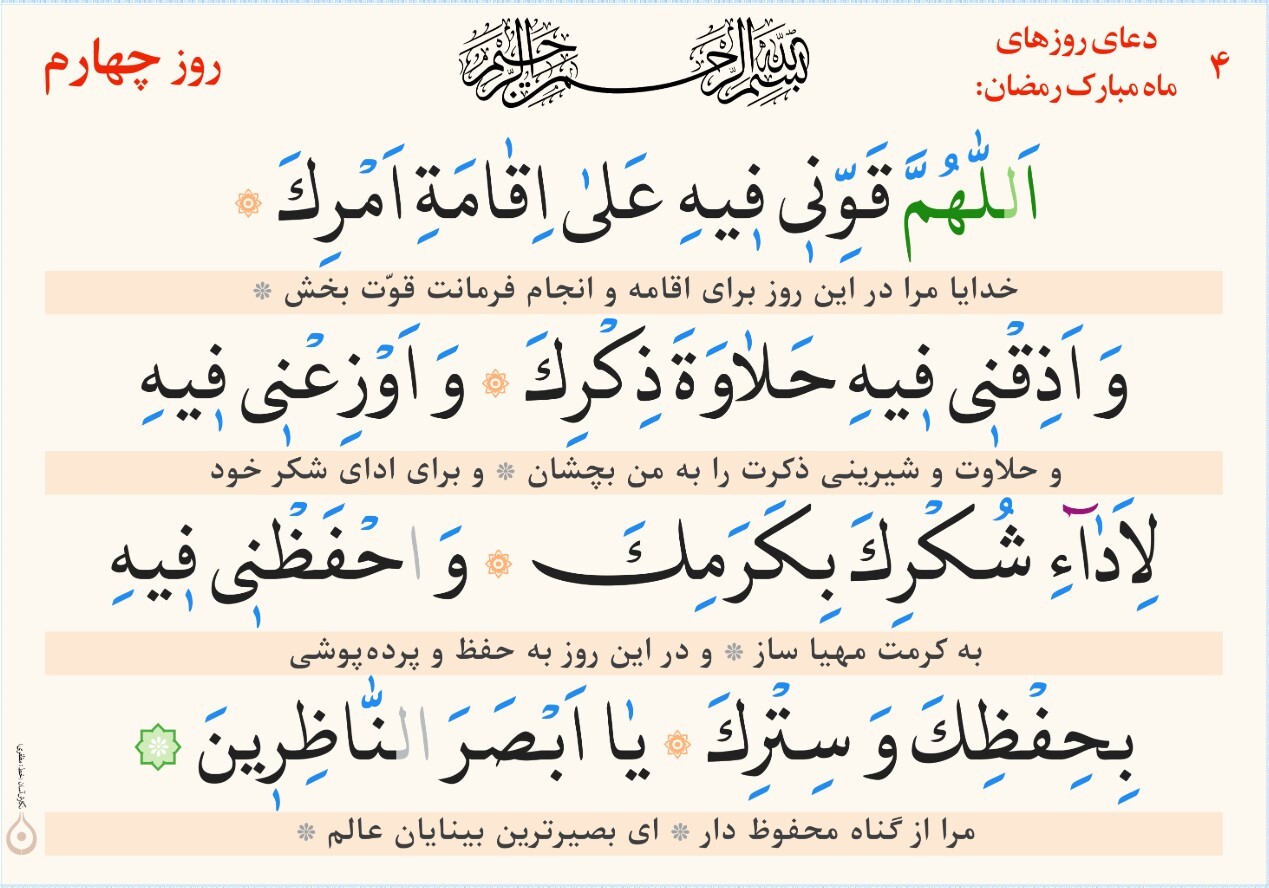 ۴
دعای روزهای
ماه مبارک رمضان:
بسم الله الرحمن الرحیم
روز چهارم
اَللّٰهُمَّ قَوِّنٖی فٖیهِ عَلیٰ اِقٰامَةِ اَمْرِكَ
خدایا مرا در این روز برای اقامه و انجام فرمانت قوّت بخش *
وَ اَذِقْنٖی فٖیهِ حَلٰاوَةَ ذِكْرِكَ وَ اَوْزِعْنٖی فٖیهِ
و حلاوت و شیرینی ذکرت را به من بچشان * و برای ادای شکر خود
لِاَدٰٓاءِ شُكْرِكَ بِكَرَمِكَ وَ احْفَظْنٖی فٖیهِ
به کرمت مهیا ساز * و در این روز به حفظ و پرده‌پوشی
بِحِفْظِكَ وَ سِتْرِكَ یٰا اَبْصَرَ النّٰاظِرٖینَ
مرا از گناه محفوظ دار * ای بصیرترین بینایان عالم *